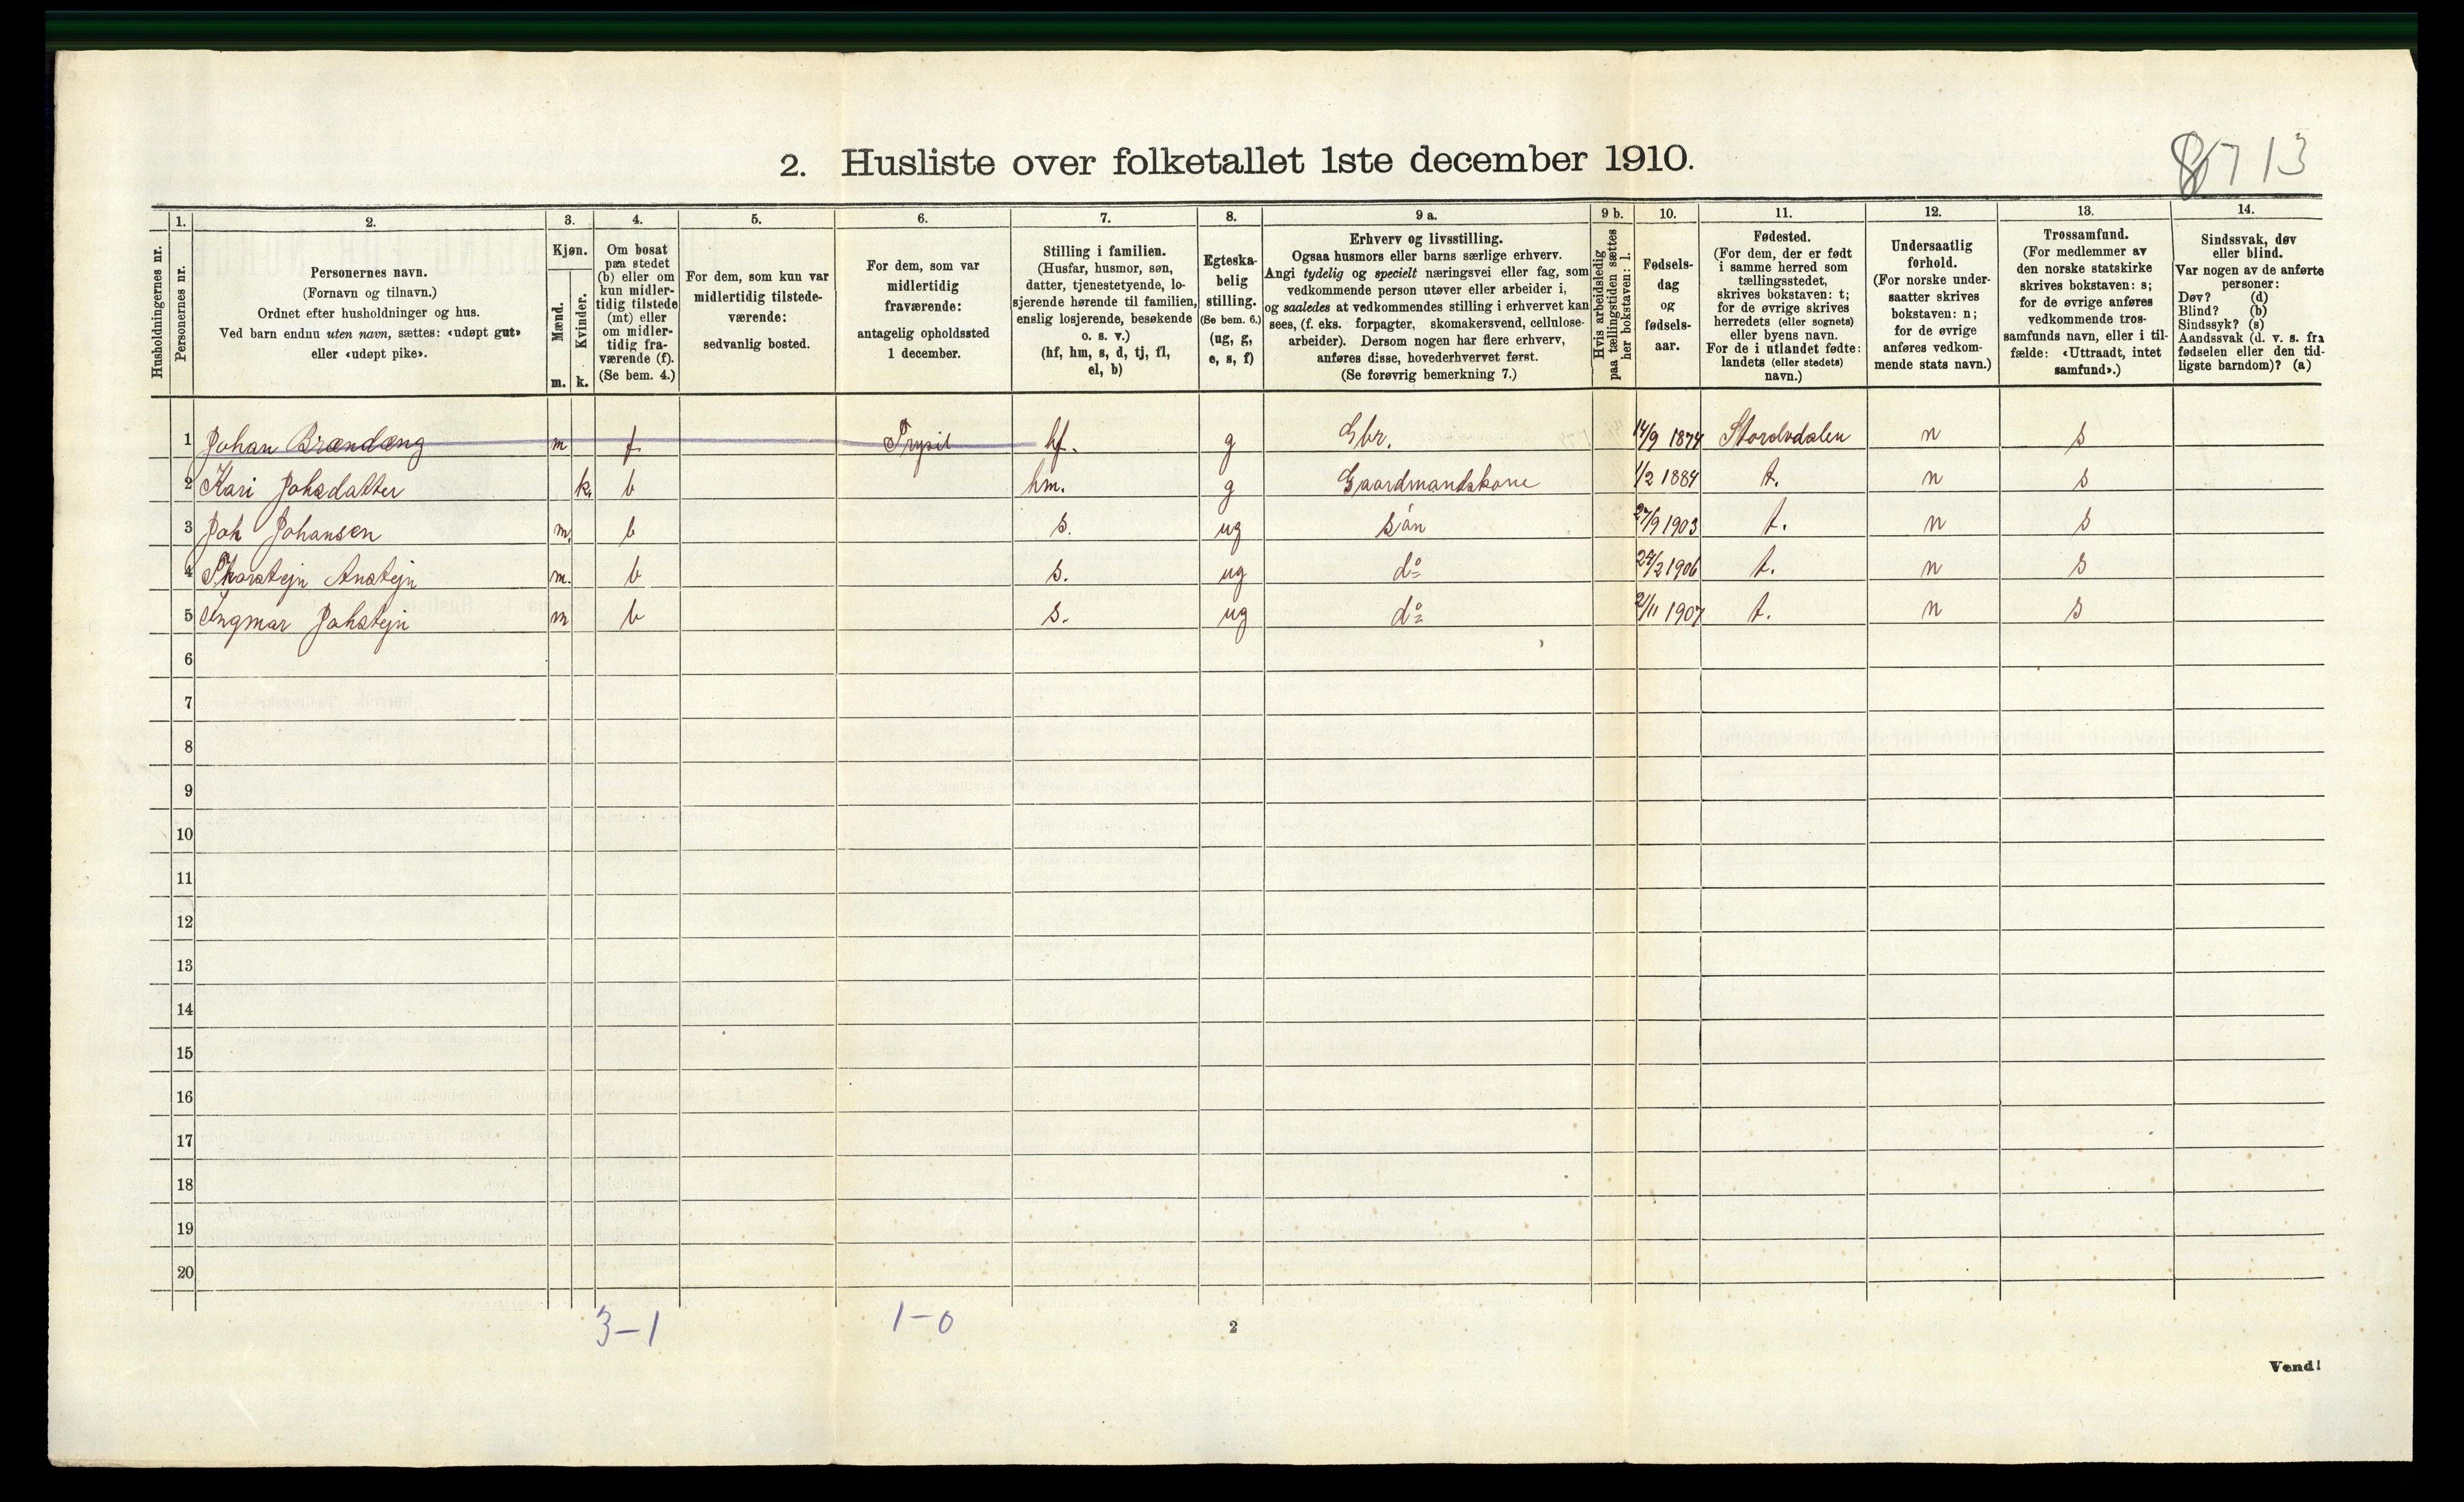 8713
2. Husliste over folketallet 1ste december 1910.
Husholdningernes nr.
1.
Personernes nr.
2.
Personernes navn.
(Fornavn og tilnavn.)
Ordnet efter husholdninger og hus.
Ved barn endnu uten navn, sættes: «udøpt gut»
eller «udøpt pike».
3.
Kjøn.
Mænd.
Kvinder.
m. k.
4.
Om bosat
paa stedet
(b) eller om
kun midler-
tidig tilstede
(mt) eller
om midler-
tidig fra-
værende (f).
(Se bem. 4.)
5.
For dem, som kun var
midlertidig tilstede-
værende:
sedvanlig bosted.
6.
For dem, som var
midlertidig
fraværende:
antagelig opholdssted
1 december.
7.
Stilling i familien.
(Husfar, husmor, søn,
datter, tjenestetyende, lo-
sjerende hørende til familien,
enslig losjerende, besøkende
o. s. v.)
(hf, hm, s, d, tj, fl,
el, b)
8.
Egteska-
belig
stilling.
(Se bem. 6.)
(ug, g,
e, s, f)
9 a.
Erhverv og livsstilling.
Ogsaa husmors eller barns særlige erhverv.
Angi tydelig og specielt næringsvei eller fag, som
vedkommende person utøver eller arbeider i,
og saaledes at vedkommendes stilling i erhvervet kan
sees, (f. eks. forpagter, skomakersvend, cellulose-
arbeider). Dersom nogen har flere erhverv,
anføres disse, hovederhvervet først.
(Se forøvrig bemerkning 7.)
9 b.
Hvis arbeidsledig
paa tællingstiden sættes
her bokstaven: l.
10.
Fødsels-
dag
og
fødsels-
aar.
11.
Fødested.
(For dem, der er født
i samme herred som
tællingsstedet,
skrives bokstaven: t;
for de øvrige skrives
herredets (eller sognets)
eller byens navn.
For de i utlandet fødte:
landets (eller stedets)
navn.)
12.
Undersaatlig
forhold.
(For norske under-
saatter skrives
bokstaven: n;
for de øvrige
anføres vedkom-
mende stats navn.)
13.
Trossamfund.
(For medlemmer av
den norske statskirke
skrives bokstaven: s;
for de øvrige anføres
vedkommende tros-
samfunds navn, eller i til-
fælde: «Uttraadt, intet
samfund».)
14.
Sindssvak, døv
eller blind.
Var nogen av de anførte
personer:
Døv? (d)
Blind? (b)
Sindssyk? (s)
Aandssvak (d. v. s. fra
fødselen eller den tid-
ligste barndom)? (a)
1 Johan Brændæng m f Trysil hf. g Gbr. 14/9 1874 n s
2 Kari Johsdatter k. b hm. g Gaardmandskone 1/2 1884 t. n s
3 Joh Johansen m. b s. ug sön 27/9 1903 t. n s
4 Thorstejn Anstejn m. b s. ug do 1906 t. n s
5 Ingmar Johstejn m b s. ug do 2/11 1907 t. n s
6
7
8
9
10
11
12
13
14
15
16
17
18
19
20
3-1 1-0
2
Vend!